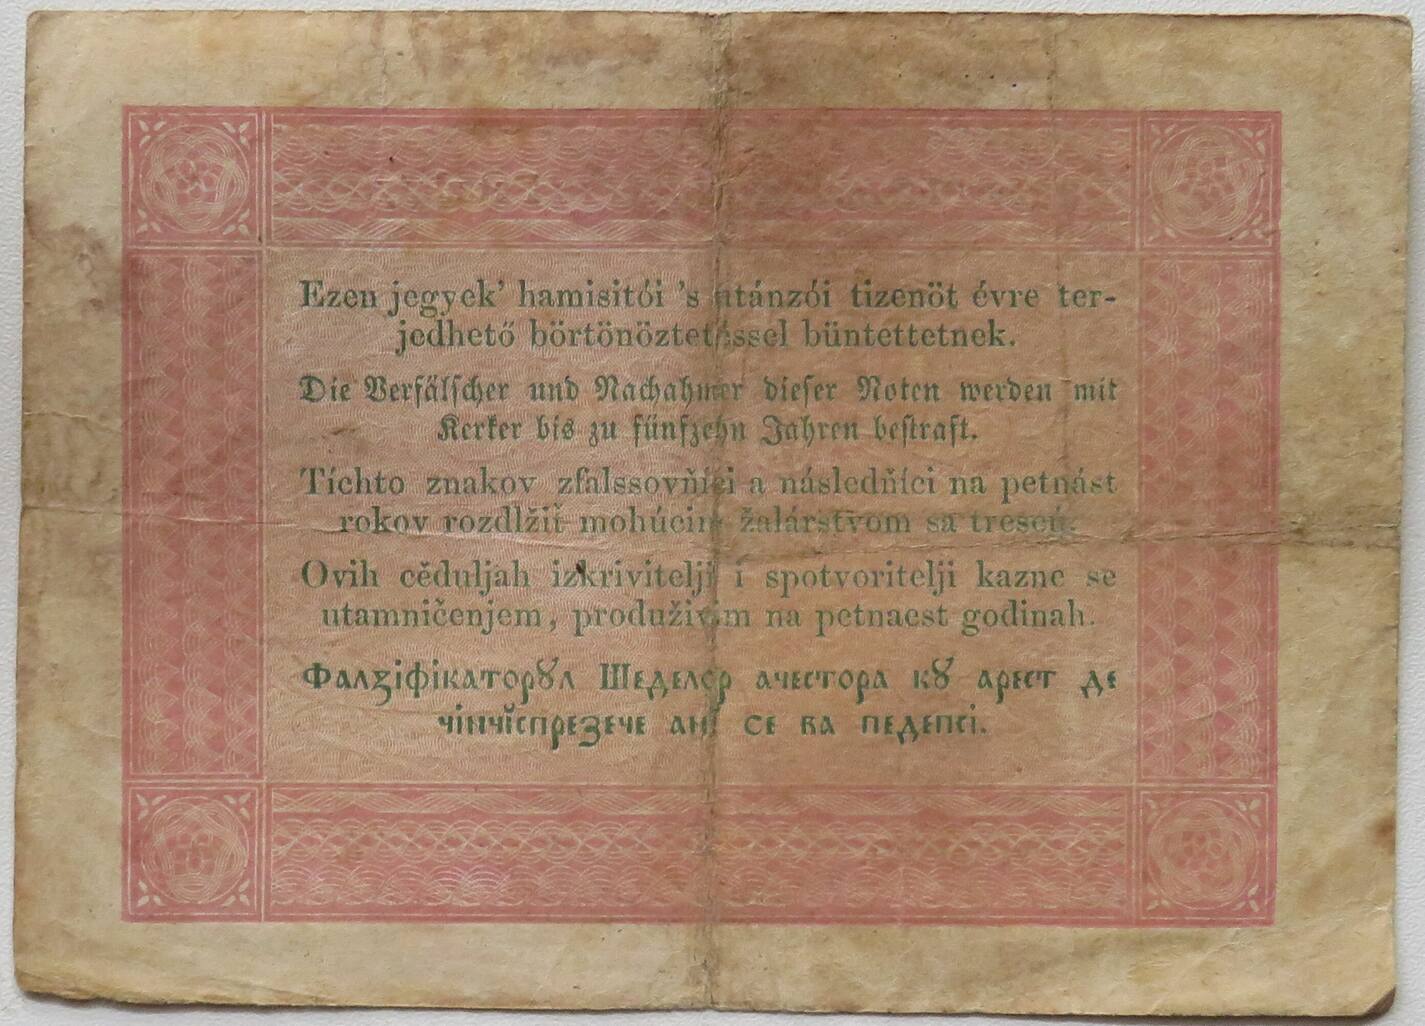 Ezen jegyek’ hamisitói ’s utánzói tizenöt évre ter-
jedhető börtönöztetéssel büntettetnek.
Die Verfälscher und Nachahmer dieser Noten werden mit
Kerker bis zu fünfzehn Jahren bestraft.
Tíchto znakov zfalssovňíci a následňíci na petnást
rokov rozdlžiť mohúcim žalárstvom sa trescú.
Ovih cěduljah izkrivitelji i spotvoritelji kazne se
utamničenjem, produživim na petnaest godinah.
Фалзіфікаторꙋл Шеделор ачестора кꙋ арест де
чінчĭспрезече ані се ва педепсі.